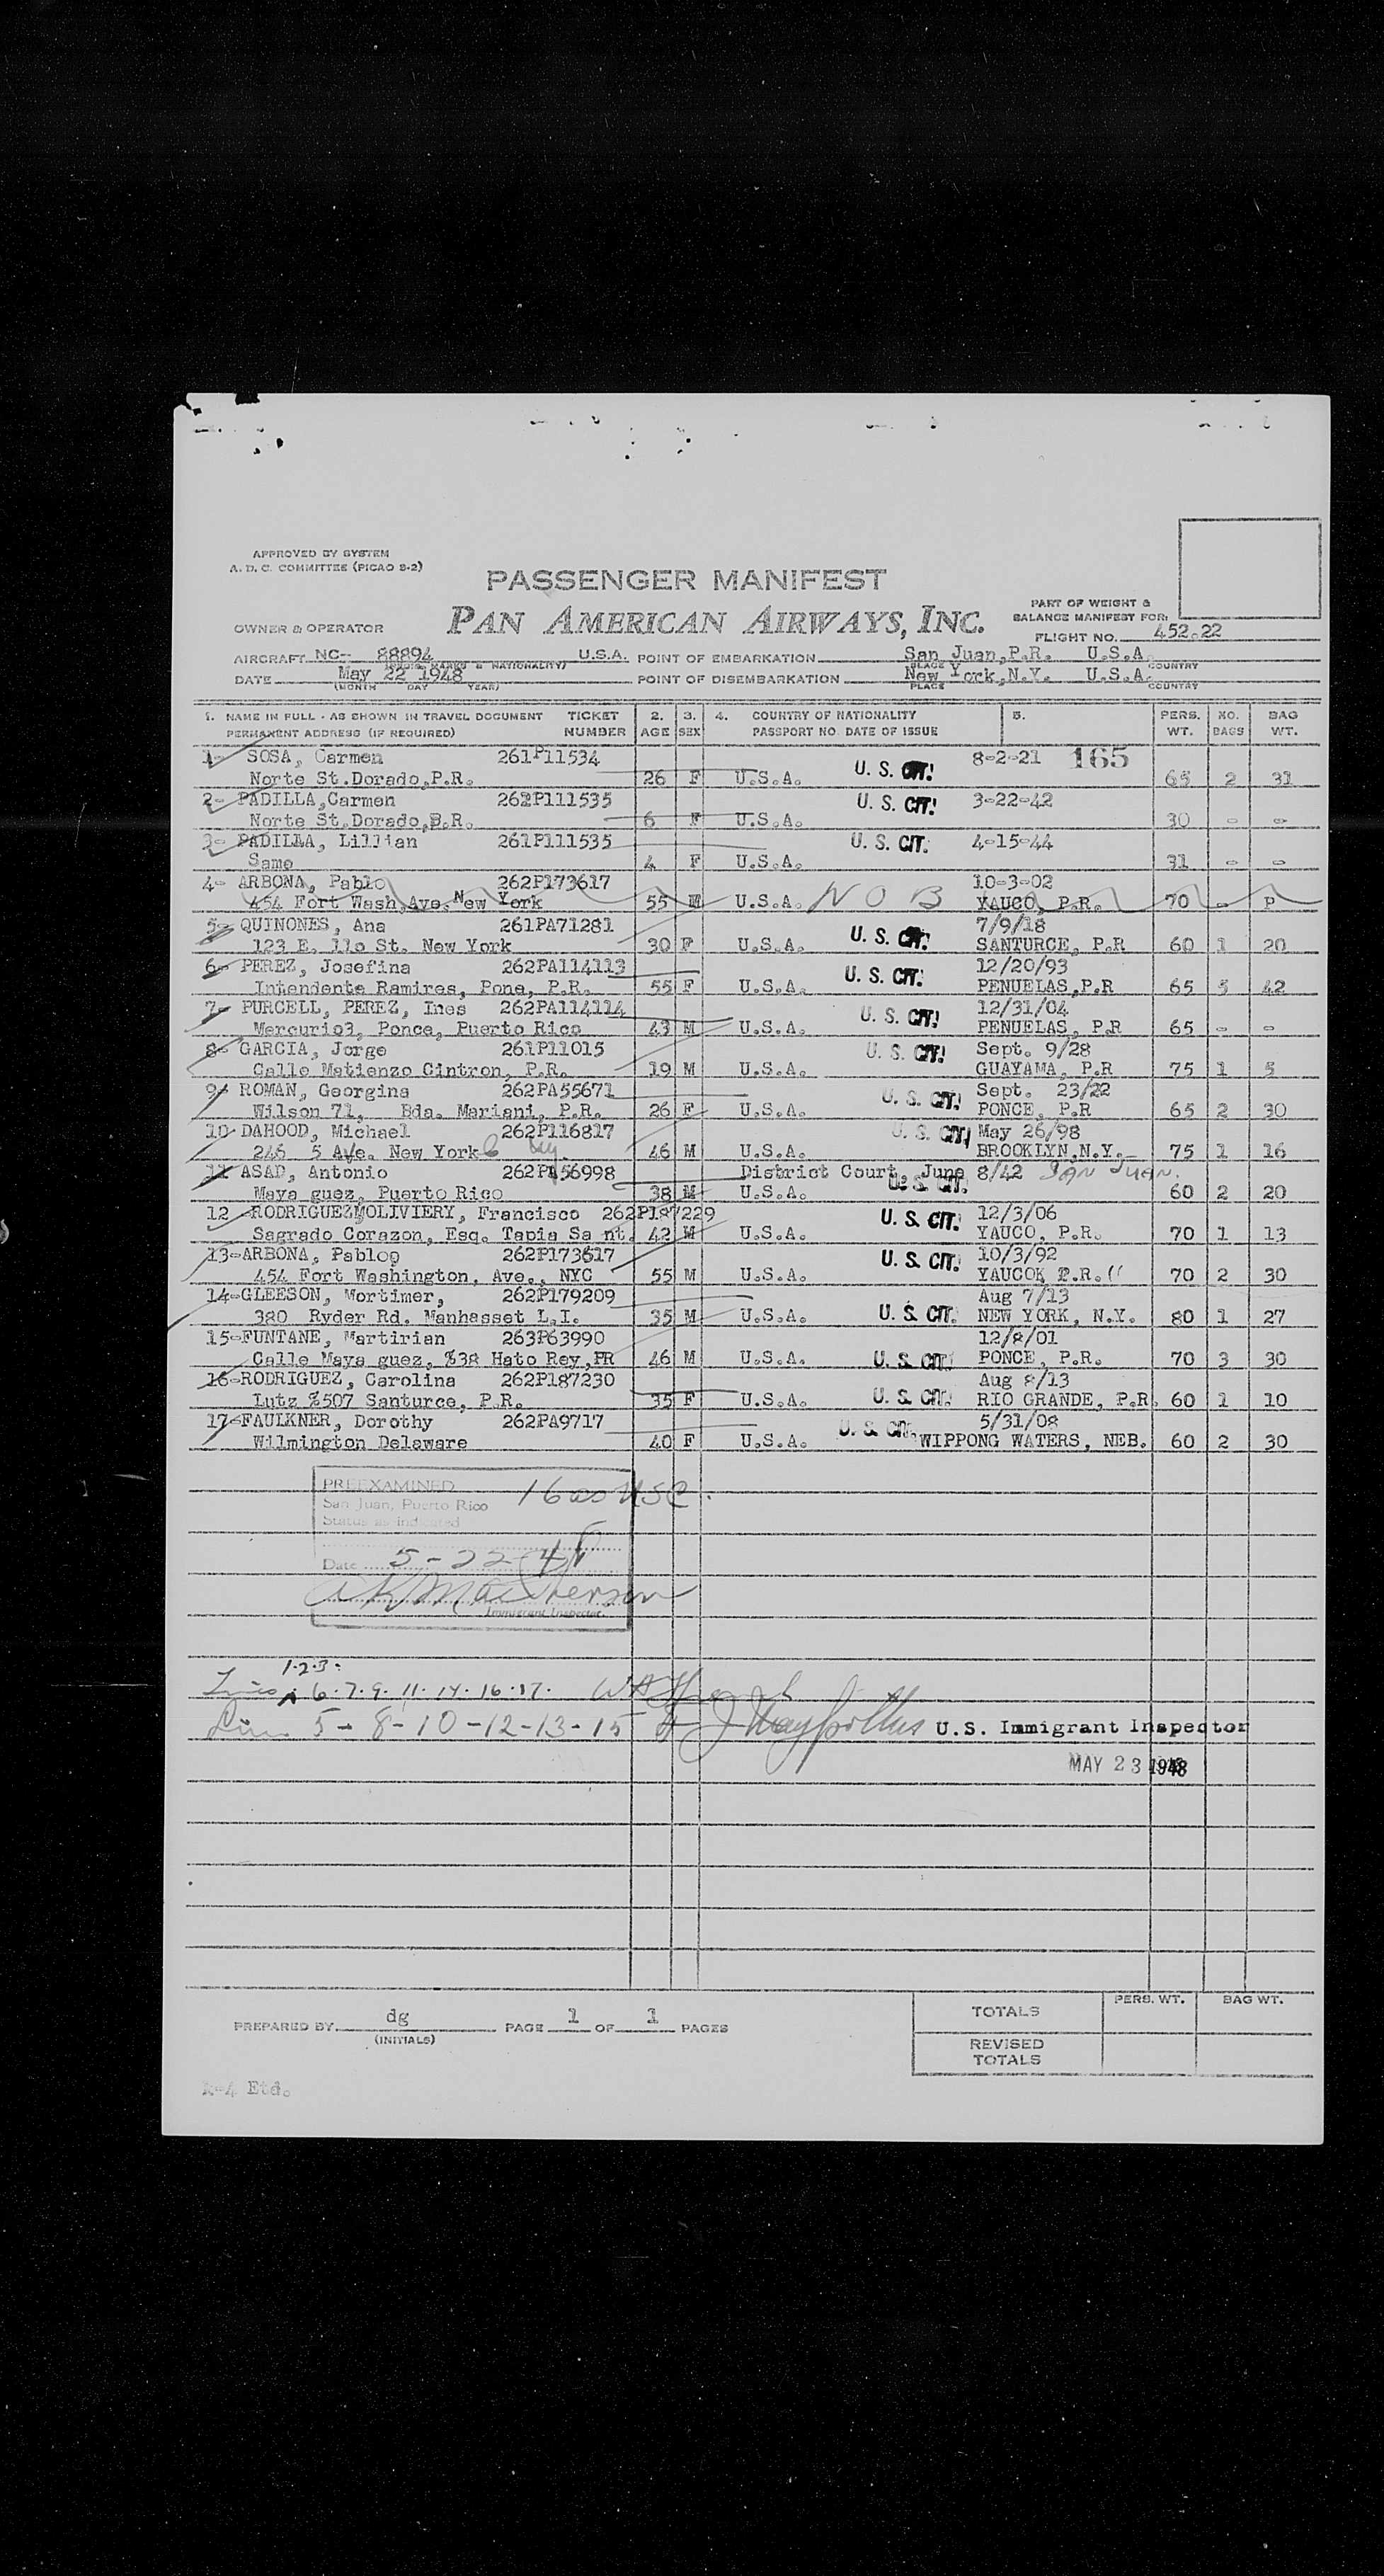 APPROVED BY SYSTEM
A. D. C. COMMITTEE (PICAO 8-2)
PASSENGER MANIFEST
PAN AMERICAN AIRWAYS, INC.
OWNER & OPERATOR
PART OF WEIGHT &
BALANCE MANIFEST FOR:
FLIGHT NO. 452-22
AIRCRAFT NC-- 88894 U.S.A. POINT OF EMBARKATION San Juan,P.R. U.S.A.
(MARKS & NATIONALITY) PLACE COUNTRY
DATE May 22 1948 POINT OF DISEMBARKATION New York,N.Y. U.S.A.
(MONTH DAY YEAR) PLACE COUNTRY
1. NAME IN FULL - AS SHOWN IN TRAVEL DOCUMENT TICKET 2. 3. 4. COUNTRY OF NATIONALITY 5. PERS. NO. BAG
PERMANENT ADDRESS (IF REQUIRED) NUMBER AGE SEX PASSPORT NO DATE OF ISSUE WT. BAGS WT.
1- SOSA, Carmen 261P11534 8-2-21 165
Norte St.Dorado,P.R. 26 F U.S.A. U. S. CIT. 65 2 31
2- PADILLA,Carmen 262P111535 U. S. CIT. 3-22-42
Norte St.Dorado,P.R. 6 F U.S.A. 30 - -
3- PADILLA, Lillian 261P111535 U. S. CIT. 4-15-44
Same 4 F U.S.A. 31 - -
4- ARBONA, Pablo 262P173617 10-3-02
454 Fort Wash.Ave.New York 55 M U.S.A. NOB YAUCO, P.R. 70 - P
5- QUINONES, Ana 261PA71281 7/9/18
123 E. 11o St. New York 30 F U.S.A. U. S. CIT. SANTURCE, P.R 60 1 20
6- PEREZ, Josefina 262PA114113 12/20/93
Intendente Ramires, Pone, P.R. 55 F U.S.A. U. S. CIT. PENUELAS,P.R 65 5 42
7- PURCELL, PEREZ, Ines 262PA114114 12/31/04
Mercurio3, Ponce, Puerto Rico 43 M U.S.A. U. S. CIT. PENUELAS, P.R 65 - -
8- GARCIA, Jorge 261P11015 Sept. 9/28
Calle Matienzo Cintron, P.R. 19 M U.S.A. U. S. CIT. GUAYAMA, P.R 75 1 5
9- ROMAN, Georgina 262PA55671 Sept. 23/22
Wilson 71, Bda. Mariani, P.R. 26 F U.S.A. U. S. CIT. PONCE, P.R 65 2 30
10- DAHOOD, Michael 262P116817 U. S. CIT. May 26/98
246 5 Ave. New York 46 M U.S.A. BROOKLYN,N.Y. 75 1 16
11- ASAD, Antonio 262PA56998 District Court, June 8/42 SAN JUAN.
Maya guez, Puerto Rico 38 M U.S.A. U. S. CIT. 60 2 20
12 -RODRIGUEZ OLIVIERY, Francisco 262P187229 12/3/06
Sagrado Corazon, Esq. Tapia Sa nt. 42 M U.S.A. U. S. CIT. YAUCO, P.R. 70 1 13
13-ARBONA, Pabloo 262P173617 U. S. CIT. 10/3/92
454 Fort Washington, Ave., NYC 55 M U.S.A. YAUCOK P.R.(( 70 2 30
14-GLEESON, Mortimer, 262P179209 Aug 7/13
380 Ryder Rd. Manhasset L.I. 35 M U.S.A. U. S. CIT. NEW YORK, N.Y. 80 1 27
15-FUNTANE, Martirian 263P63990 12/8/01
Calle Maya guez, %38 Hato Rey,PR 46 M U.S.A. U. S. CIT. PONCE, P.R. 70 3 30
16-RODRIGUEZ, Carolina 262P187230 Aug 8/13
Lutz %507 Santurce, P.R. 35 F U.S.A. U. S. CIT. RIO GRANDE, P.R. 60 1 10
17-FAULKNER, Dorothy 262PA9717 5/31/08
Wilmington Delaware 40 F U.S.A. U. S. CIT. WIPPONG WATERS, NEB. 60 2 30
PREEXAMINED 16 as USC.
San Juan, Puerto Rico
Status as indicated
Date 5-22-48
Immigrant Inspector.
1-2-3-
Lines 6-7-9-11-14-16-17.
Lines 5-8-10-12-13-15 U.S. Immigrant Inspector
MAY 23 1948
PERS. WT. BAG WT.
TOTALS
REVISED
TOTALS
PREPARED BY dg PAGE 1 OF 1 PAGES
(INITIALS)
k-4 Etd.